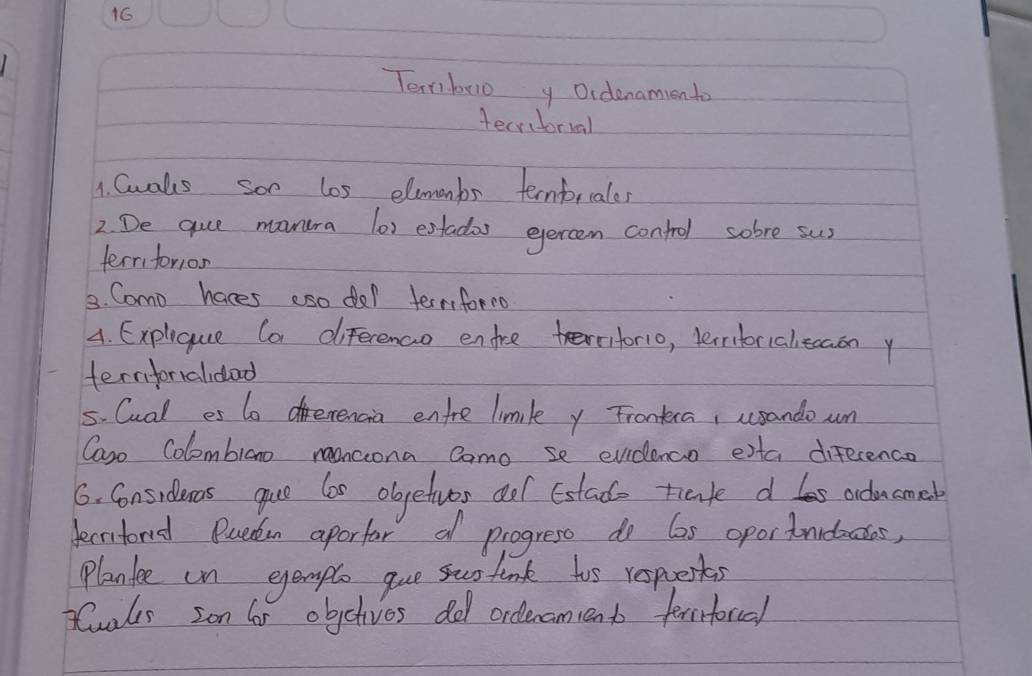 16
Territorio y Ordenamiento
territorial
1. Cuales son los elementos territoriales
2. De que manera los estados ejercen control sobre sus
territorios
3. Como haces uso del territorio
4. Explique la diferencia entre territorio, territorialización y
territorialidad
5. Cual es la diferencia entre limite y Frontera, usando un
Caso Colombiano menciona como se evidencia esta diferencia
6. Consideras que los objetivos del Estado frente al ordenamiento
territorial Pueden aportar al progreso de las oportunidades,
Plantee un ejemplo que sustente tus respuestas
7 Cuales son los objetivos del ordenamiento territorial